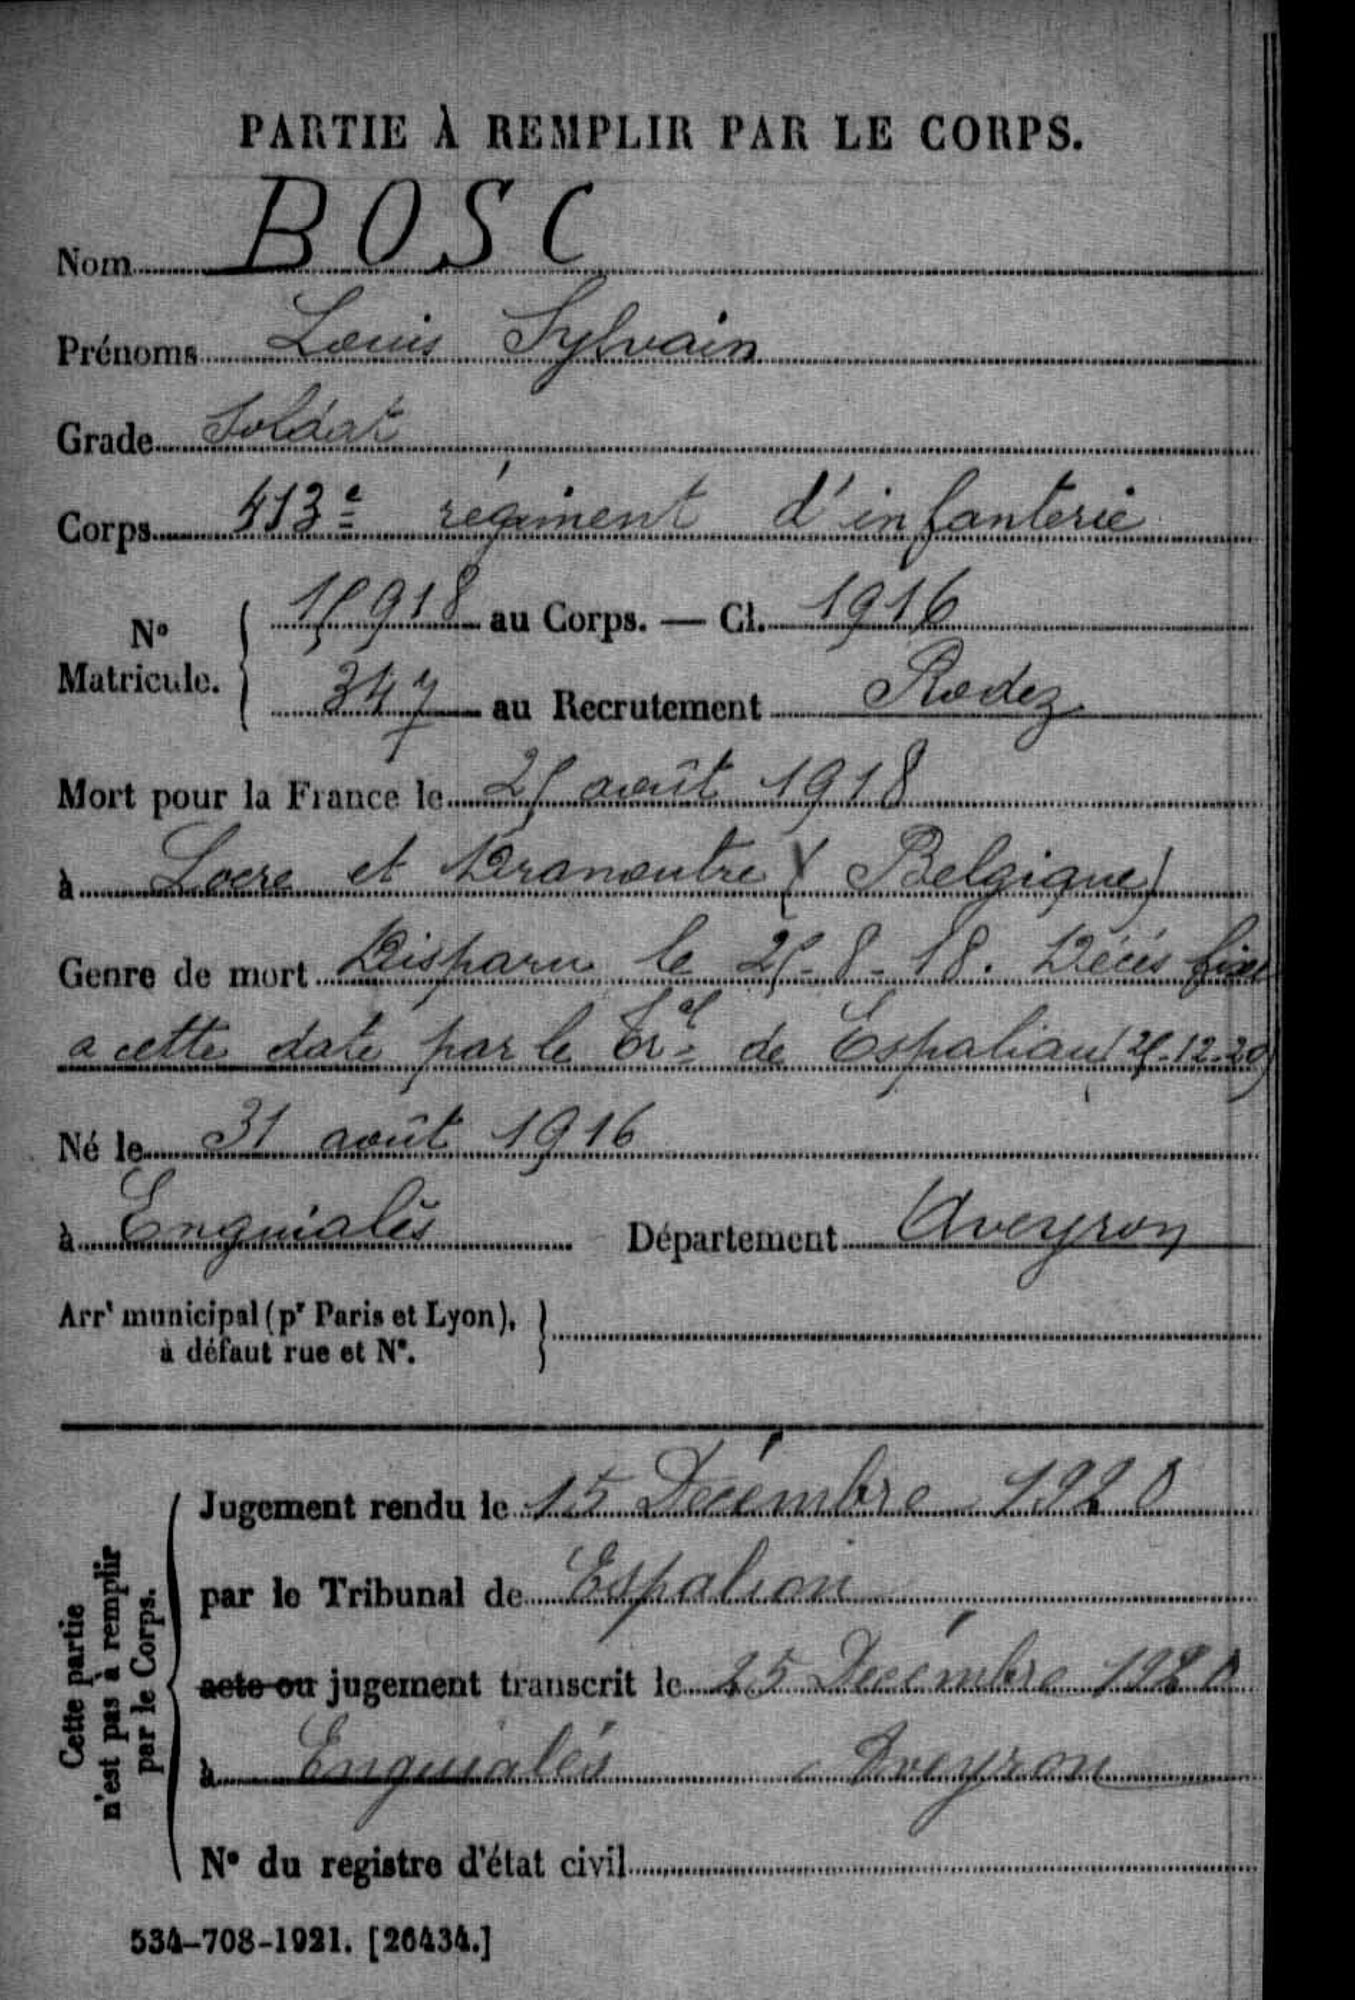 PARTIE À REMPLIR PAR LE CORPS.
Nom BOSC
Prénoms Louis Sylvain
Grade Soldat
Corps 413e régiment d'infanterie
No Matricule. { 15918 au Corps. — Cl. 1916
347 au Recrutement Rodez
Mort pour la France le 25 août 1918
à Locre et Dranoutre (Belgique)
Genre de mort Disparu le 25-8-18. Décés fixé
a cette date par le Tral de Espalion (25-12-20)
Né le 31 août 1916
à Enguialès Département Aveyron
Arrt municipal (pr Paris et Lyon), à défaut rue et No. }
Cette partie n'est pas à remplir par le Corps.
Jugement rendu le 15 Décembre 1920
par le Tribunal de Espalion
acte ou jugement transcrit le 25 Décembre 1920
à Enguialès Aveyron
No du registre d'état civil
534-708-1921. [26434.]